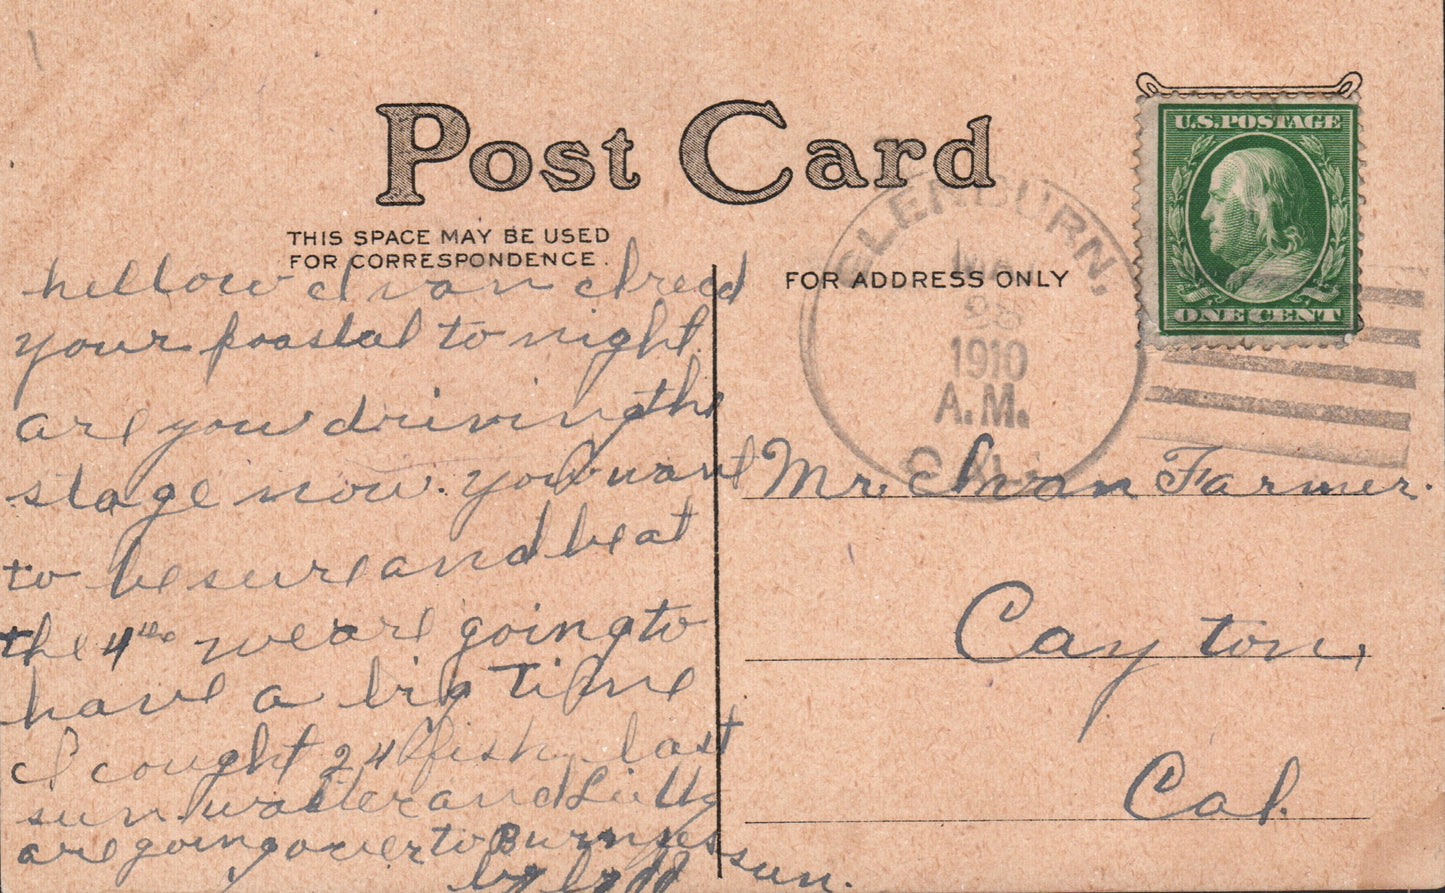 Post Card
THIS SPACE MAY BE USED
FOR CORRESPONDENCE.
hellow Ivan
your poastal to night.
are you driving the
stage now. you want
to be sure and be at
the 4the we are going to
have a big Time
I cought 24 fish last
sun. walter and
are going over to Burneyes sun.
by by
FOR ADDRESS ONLY
GLENBURN,
1910
A.M.
CAL.
U.S. POSTAGE
ONE CENT
Mr. Ivan Farmer.
Cayton,
Cal.